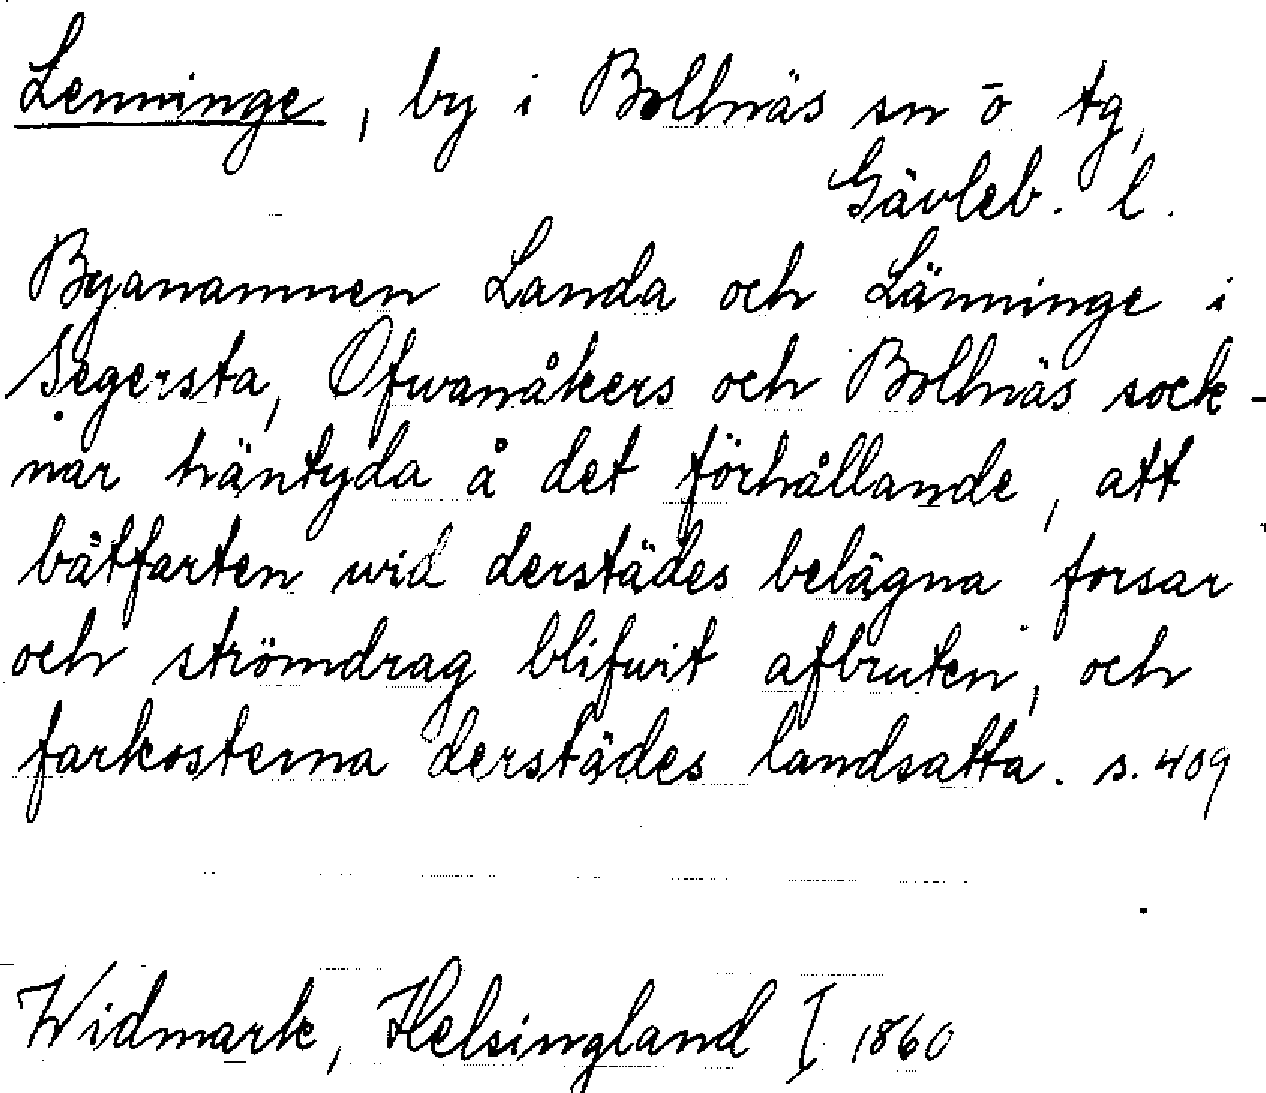 Lenninge, by i Bollnäs sn o tg,
Gävleb. l.
Byanamnen Landa och Länninge i
Segersta, Ofwanåkers och Bollnäs sock-
nar häntyda å det förhållande, att
båtfarten wid derstädes belägna forsar
och strömdrag blifwit afbruten, och
farkosterna derstädes landsatta. s. 409
Widmark, Helsingland I 1860